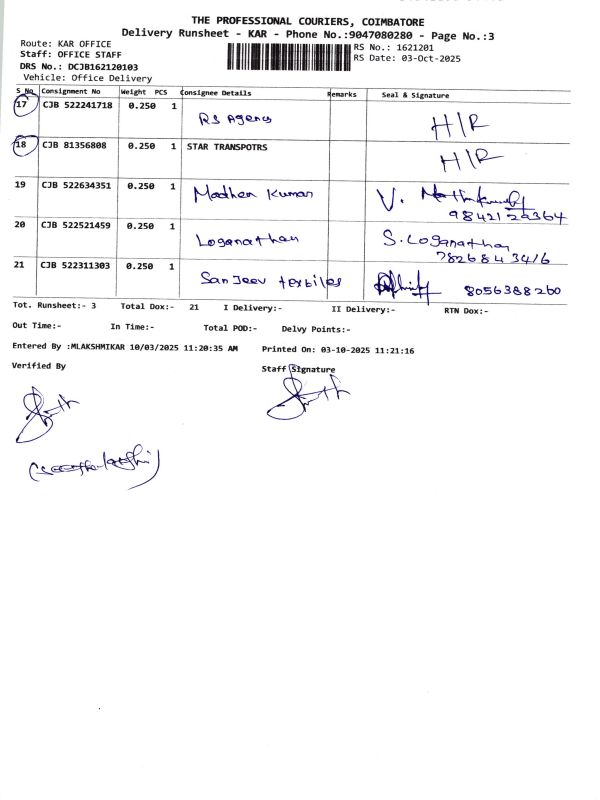 THE PROFESSIONAL COURIERS, COIMBATORE
Delivery Runsheet - KAR - Phone No.:9047080280 - Page No.:3
Route: KAR OFFICE
RS No.: 1621201
Staff: OFFICE STAFF
RS Date: 03-Oct-2025
DRS No.: DCJB162120103
Vehicle: Office Delivery
S No Consignment No Weight PCS Consignee Details Remarks Seal & Signature
17 CJB 522241718 0.250 1 RS Agency H/R
18 CJB 81356808 0.250 1 STAR TRANSPOTRS H/R
19 CJB 522634351 0.250 1 Madhen Kumar V.
9842129364
20 CJB 522521459 0.250 1 Loganathan S. Loganathan
7826843416
21 CJB 522311303 0.250 1 Sanjeev textiles 8056388260
Tot. Runsheet:- 3 Total Dox:- 21 I Delivery:- II Delivery:- RTN Dox:-
Out Time:- In Time:- Total POD:- Delvy Points:-
Entered By :MLAKSHMIKAR 10/03/2025 11:20:35 AM Printed On: 03-10-2025 11:21:16
Verified By Staff Signature